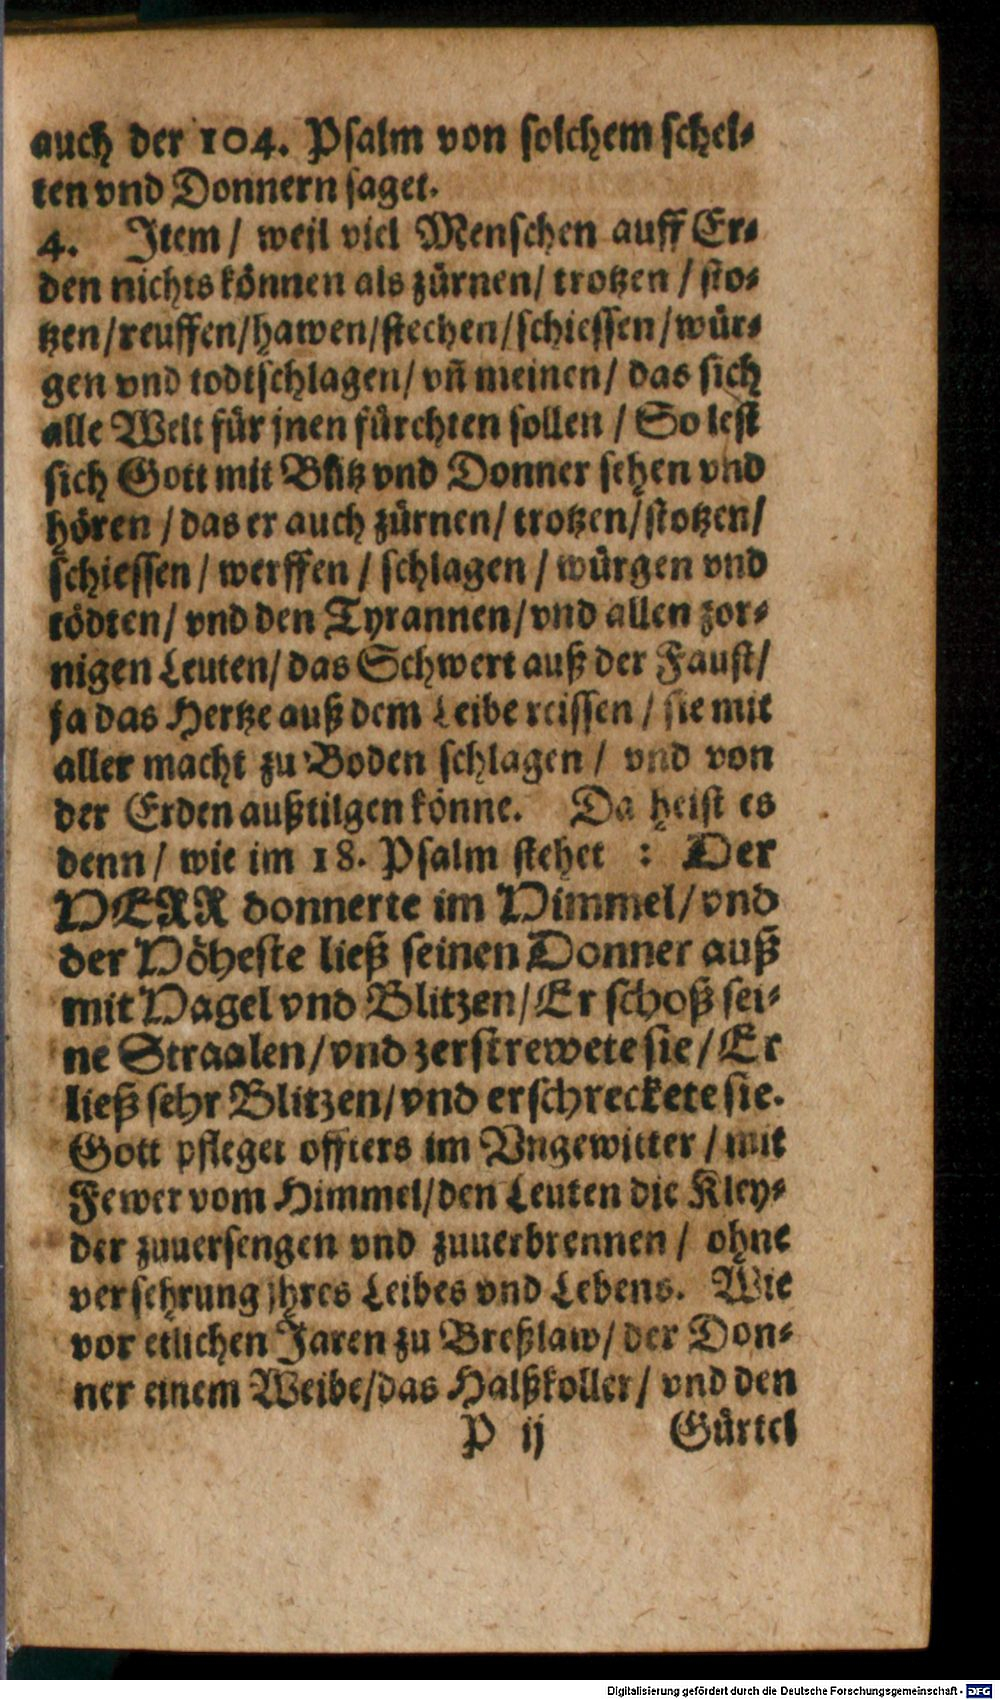 auch der 104. Psalm von solchem schel-
ten vnd Donnern saget.
4. Item / weil viel Menschen auff Er-
den nichts können als zürnen / trotzen / sto-
tzen / reuffen / hawen / stechen / schiessen / wür-
gen vnd todtschlagen / vñ meinen / das sich
alle Welt für jnen fürchten sollen / So lest
sich Gott mit Blitz vnd Donner sehen vnd
hören / das er auch zürnen / trotzen / stotzen /
schiessen / werffen / schlagen / würgen vnd
tödten / vnd den Tyrannen / vnd allen zor-
nigen Leuten / das Schwert auß der Faust /
ja das Hertze auß dem Leibe reissen / sie mit
aller macht zu Boden schlagen / vnd von
der Erden außtilgen könne. Da heist es
denn / wie im 18. Psalm stehet : Der
HERR donnerte im Himmel / vnd
der Höheste ließ seinen Donner auß
mit Hagel vnd Blitzen / Er schoß sei-
ne Straalen / vnd zerstrewete sie / Er
ließ sehr Blitzen / vnd erschreckete sie.
Gott pfleget offters im Vngewitter / mit
Fewer vom Himmel / den Leuten die Kley-
der zuuersengen vnd zuuerbrennen / ohne
versehrung jhres Leibes vnd Lebens. Wie
vor etlichen Jaren zu Breßlaw / der Don-
ner einem Weibe / das Halßkoller / vnd den
P ij Gürtel
Digitalisierung gefördert durch die Deutsche Forschungsgemeinschaft - DFG